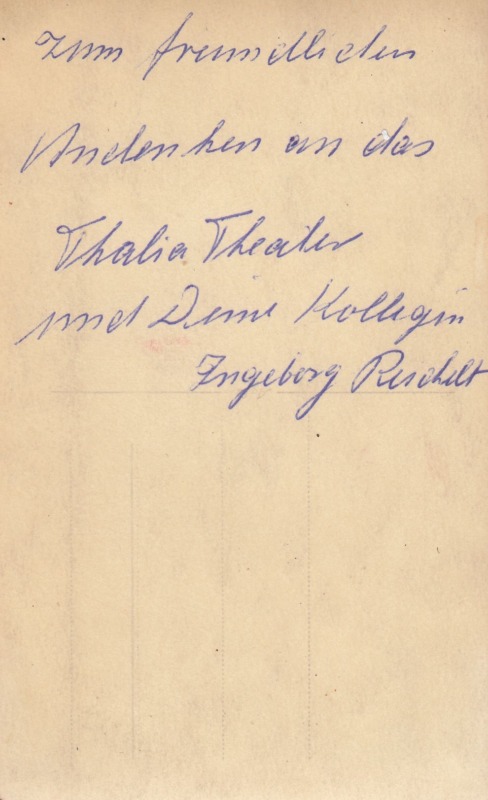 Zum freundlichen
Andenken an das
Thalia Theater
und Deine Kollegin
Ingeborg Reichelt